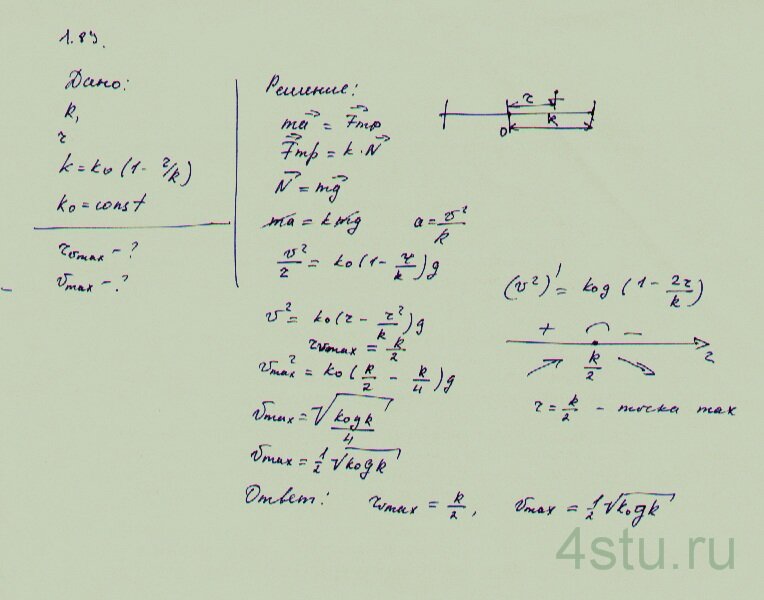 1.84.
Дано:
R,
r
k = k₀(1 - r/R)
k₀ = const
r_vmax - ?
v_max - ?
Решение:
ma⃗ = F⃗тр
F⃗тр = k · N⃗
N⃗ = mg⃗
ma = kmg a = v²/R
v²/r = k₀(1 - r/R)g
v² = k₀(r - r²/R)g
r_vmax = R/2
v_max² = k₀(R/2 - R/4)g
v_max = √(k₀gR/4)
v_max = 1/2 √(k₀gR)
Ответ: r_vmax = R/2, v_max = 1/2 √(k₀gR)
r
0 R
(v²)' = k₀g(1 - 2r/R)
+ -
R/2 r
r = R/2 - точка max
4stu.ru